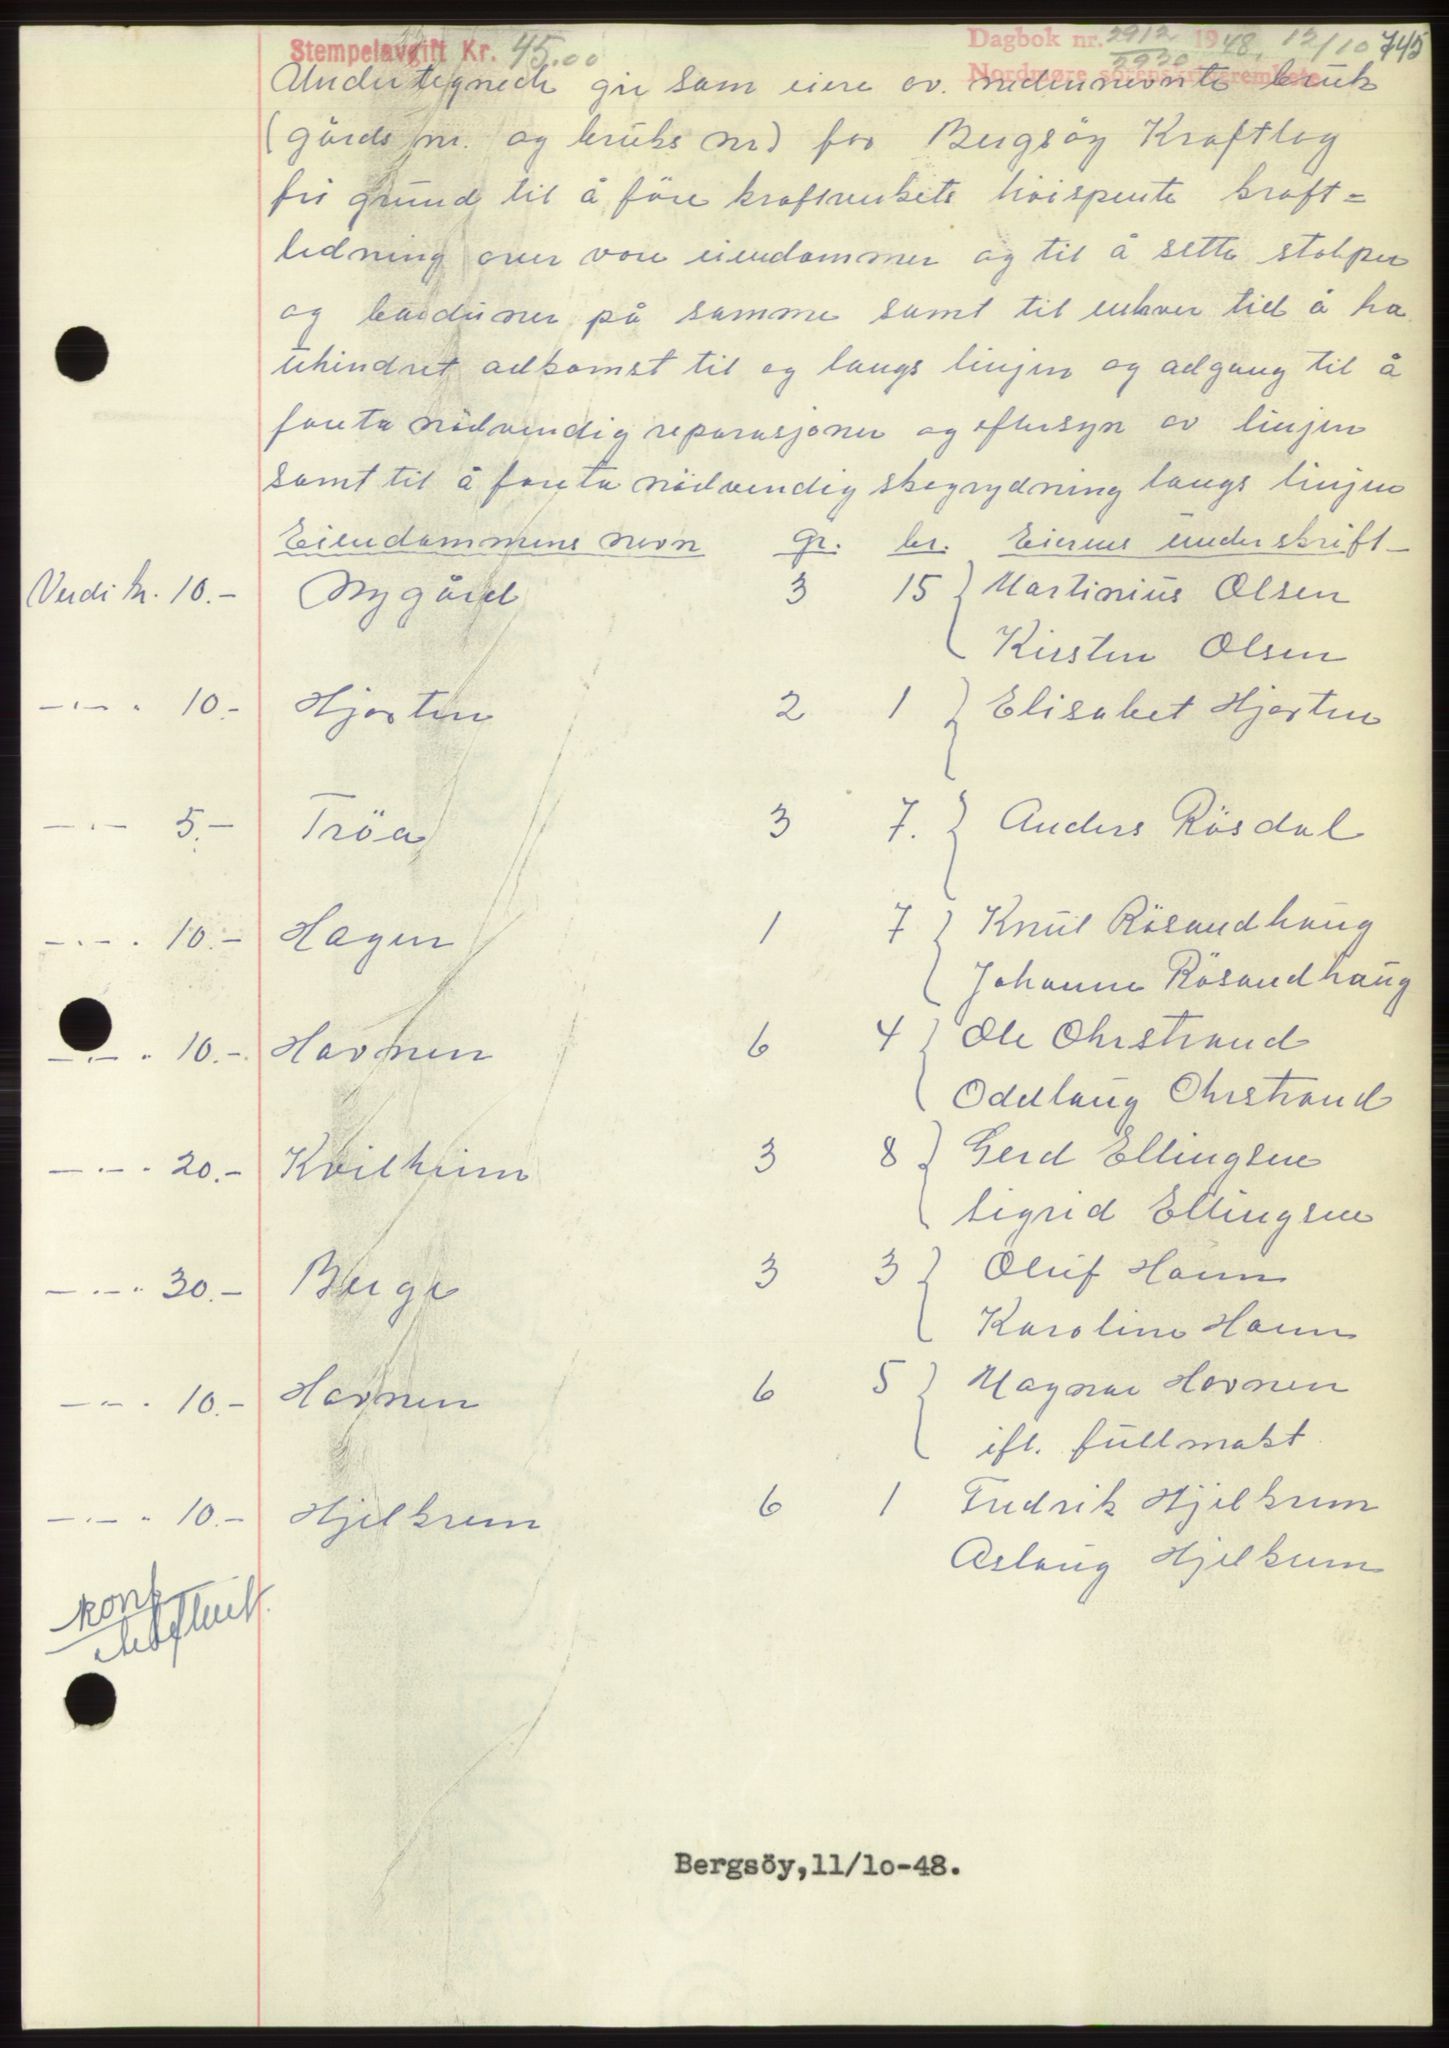 Stempelavgift Kr. 45.00
Dagbok nr. 2912/2930 1948, 12/10 745
Nordmøre sorenskriverembete
Undertegnede gir som eiere av nedennevnte bruk
(gårds nr. og bruks nr) for Bergsöy Kraftlag
fri grund til å före kraftverkets höispente kraft=
ledning over våre eiendommer og til å sette stolper
og barduner på samme samt til enhver tid å ha
uhindret adkomst til og langs linjen og adgang til å
foreta nödvendig reparasjoner og eftersyn av linjen
samt til å foreta nödvendig skogrydning langs linjen
Eiendommens navn gr. br. Eierens underskrift
Verdi kr. 10.- Nygård 3 15 } Martinius Olsen
Kirsten Olsen
-"- " 10.- Hjorten 2 1 } Elisabet Hjorten
-"- 5.- Tröa 3 7. } Anders Rösdal
-"- " 10.- Hagen 1 7 } Knut Rösandhaug
Johanne Rösandhaug
-"- " 10.- Havnen 6 4 } Ole Ohrstrand
Oddlaug Ohrstrand
-"- " 20.- Kvilheim 3 8 } Gerd Ellingsen
Sigrid Ellingsen
-"- " 30.- Berge 3 3 } Oluf Hamn
Karoline Hamn
-"- " 10.- Havnen 6 5 } Magnar Havnen
ifl. fullmakt
-"- " 10.- Hjelkrem 6 1 Fredrik Hjelkrem
Aslaug Hjelkrem
konf
Bergsöy,11/10-48.